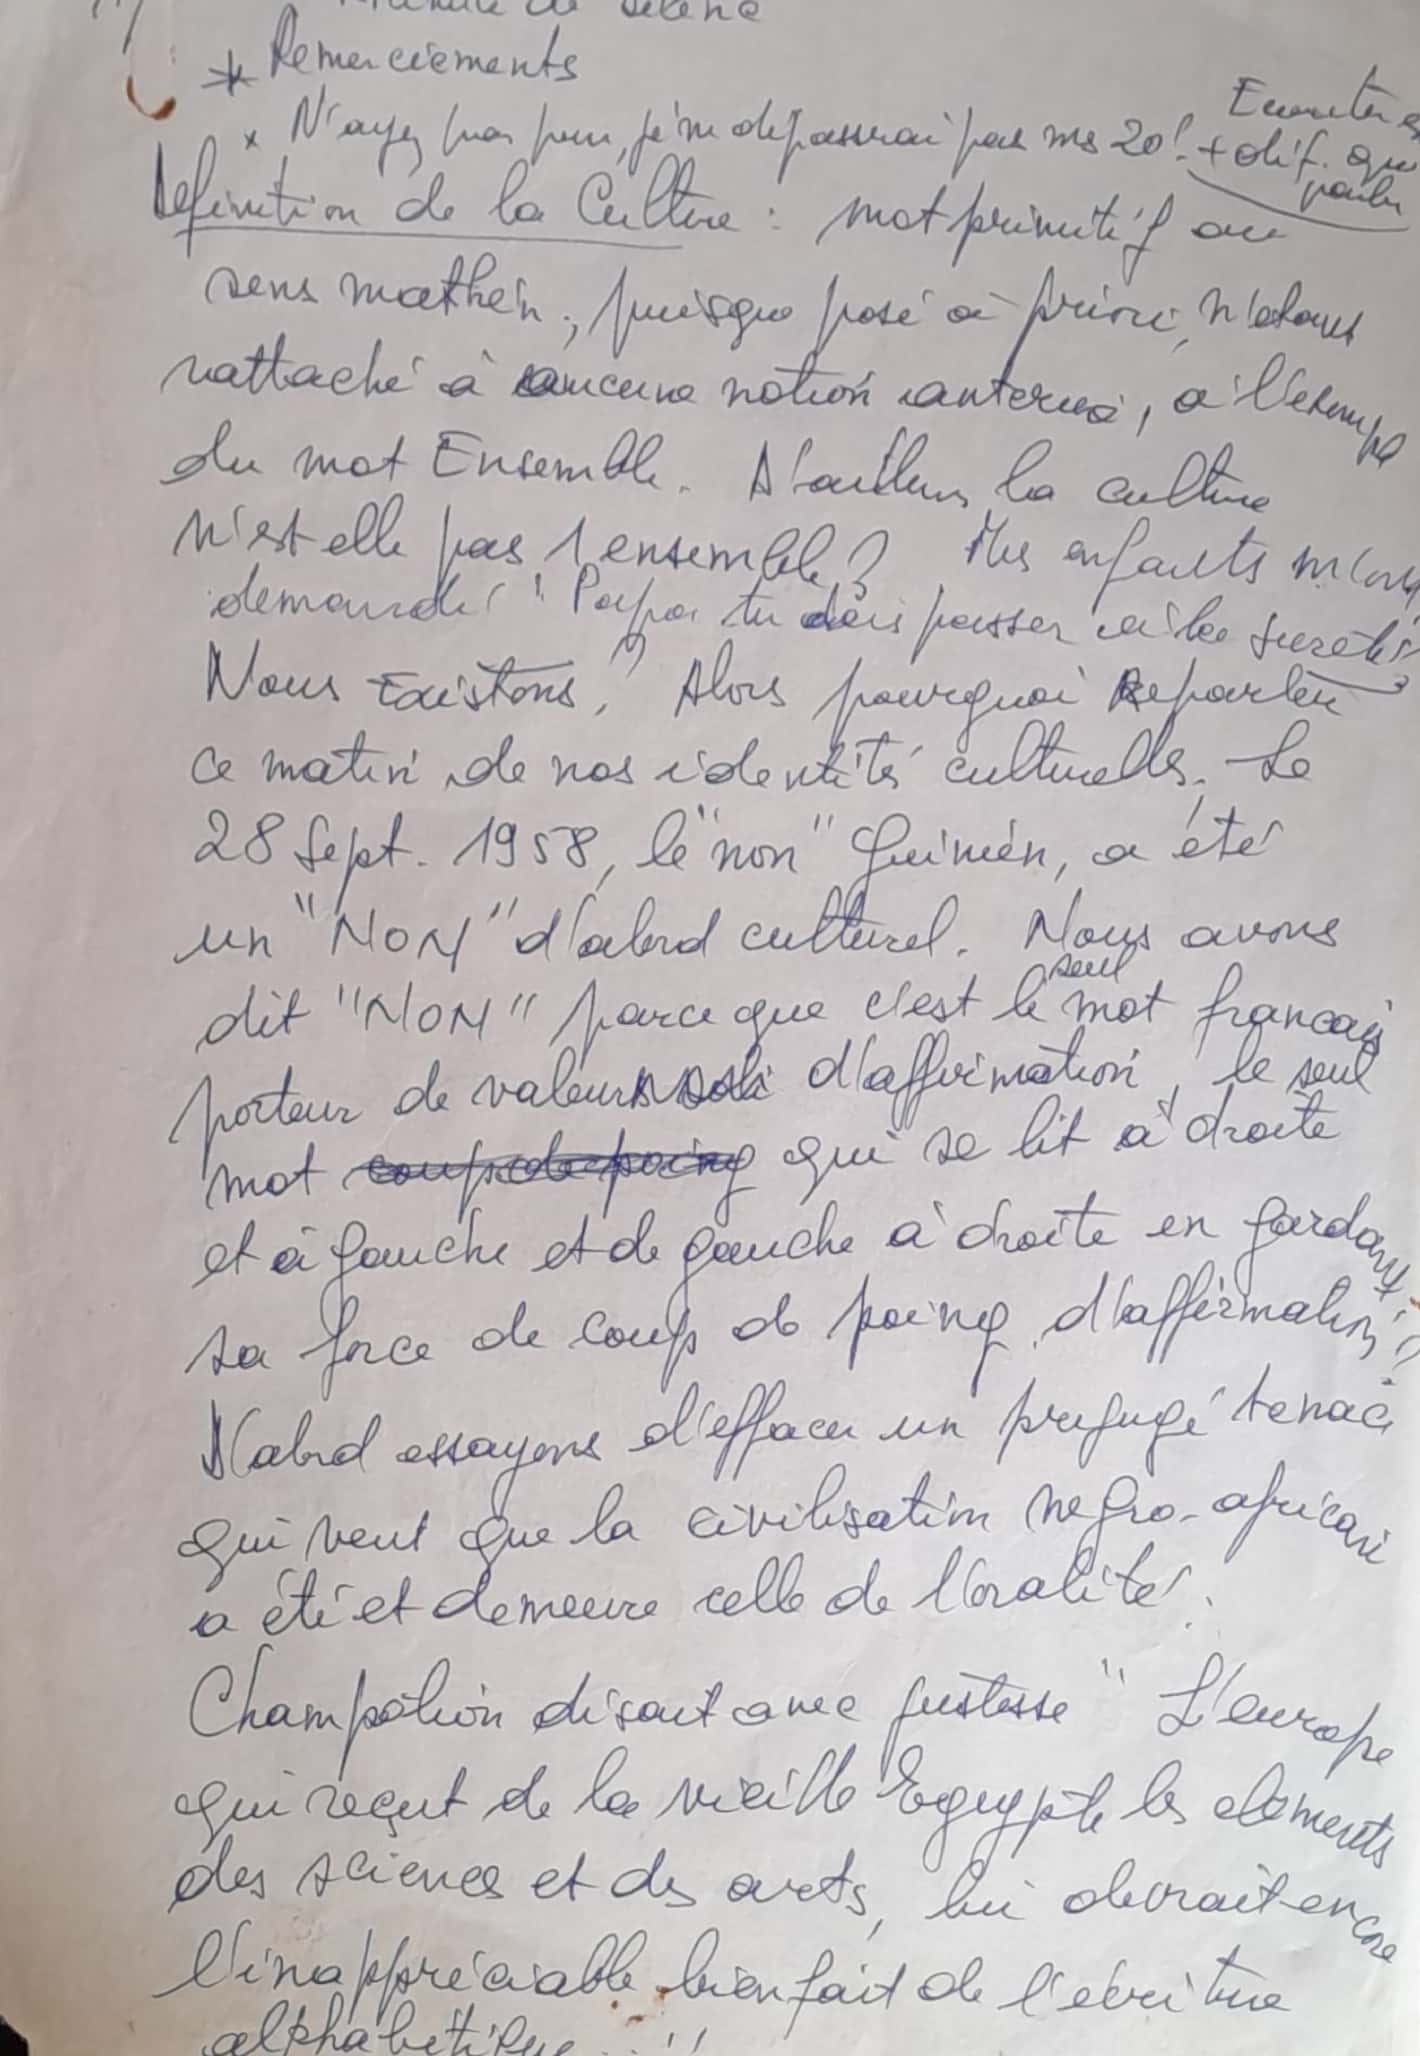 Minute de silence
* Remerciements
Ecouter est
x N'ayez pas peur, je ne dépasserai pas mes 20'. + dif. que
parler
Définition de la Culture : mot primitif au
sens mathém., puisque posé à priori, n'étant
rattaché à aucune notion anterieure, à l'exemple
du mot Ensemble. D'ailleurs la culture
n'est elle pas 1 ensemble ? Mes enfants m'ont
demandé : " Papa tu dois passer à la sureté "?
Nous Existons ! Alors pourquoi Reparler
ce matin de nos identités culturelles. Le
28 Sept. 1958, le "non" Guinéen, a été
un "NON" d'abord culturel. Nous avons
seul
dit "NON" parce que c'est le mot francais
porteur de valeurs d'affirmation, le seul
mot coup de poing qui se lit à droite
et à gauche et de gauche à droite en gardant
sa force de coup de poing d'affirmation ?
D'abord essayons d'effacer un prejugé tenace
qui veut que la civilisation negro-africaine
a été et demeure celle de l'oralité.
Champolion disait avec justesse " L'europe
qui reçut de la vieille Egypte les elements
des sciences et des arts, lui devrait encore
l'inappréciable bienfait de l'écriture
alphabétique... "